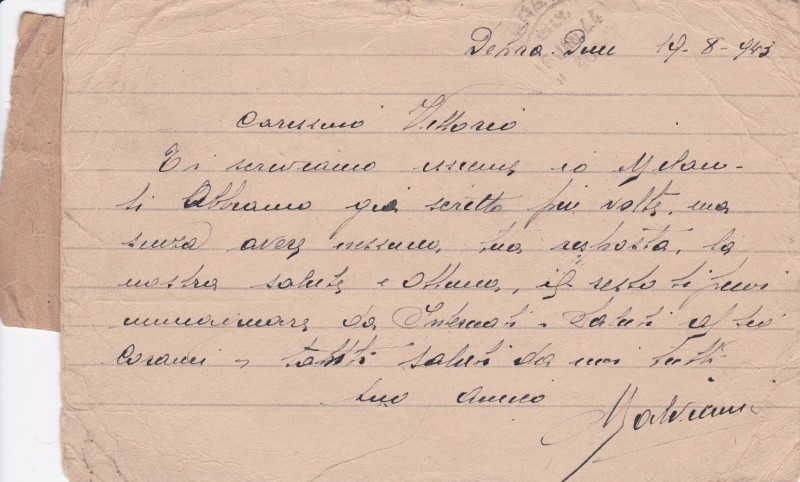 Dehra Dun 19-8-943
Carissimo Vittorio
Ti scriviamo assieme io Milan-
ti Abbiamo già scritto più volte, ma
senza avere nessuna tua risposta, la
nostra salute è ottima, il resto ti puoi
immaginare da Internati. Saluti ai tuoi
Carami e tanti saluti da noi tutti
tuo amico